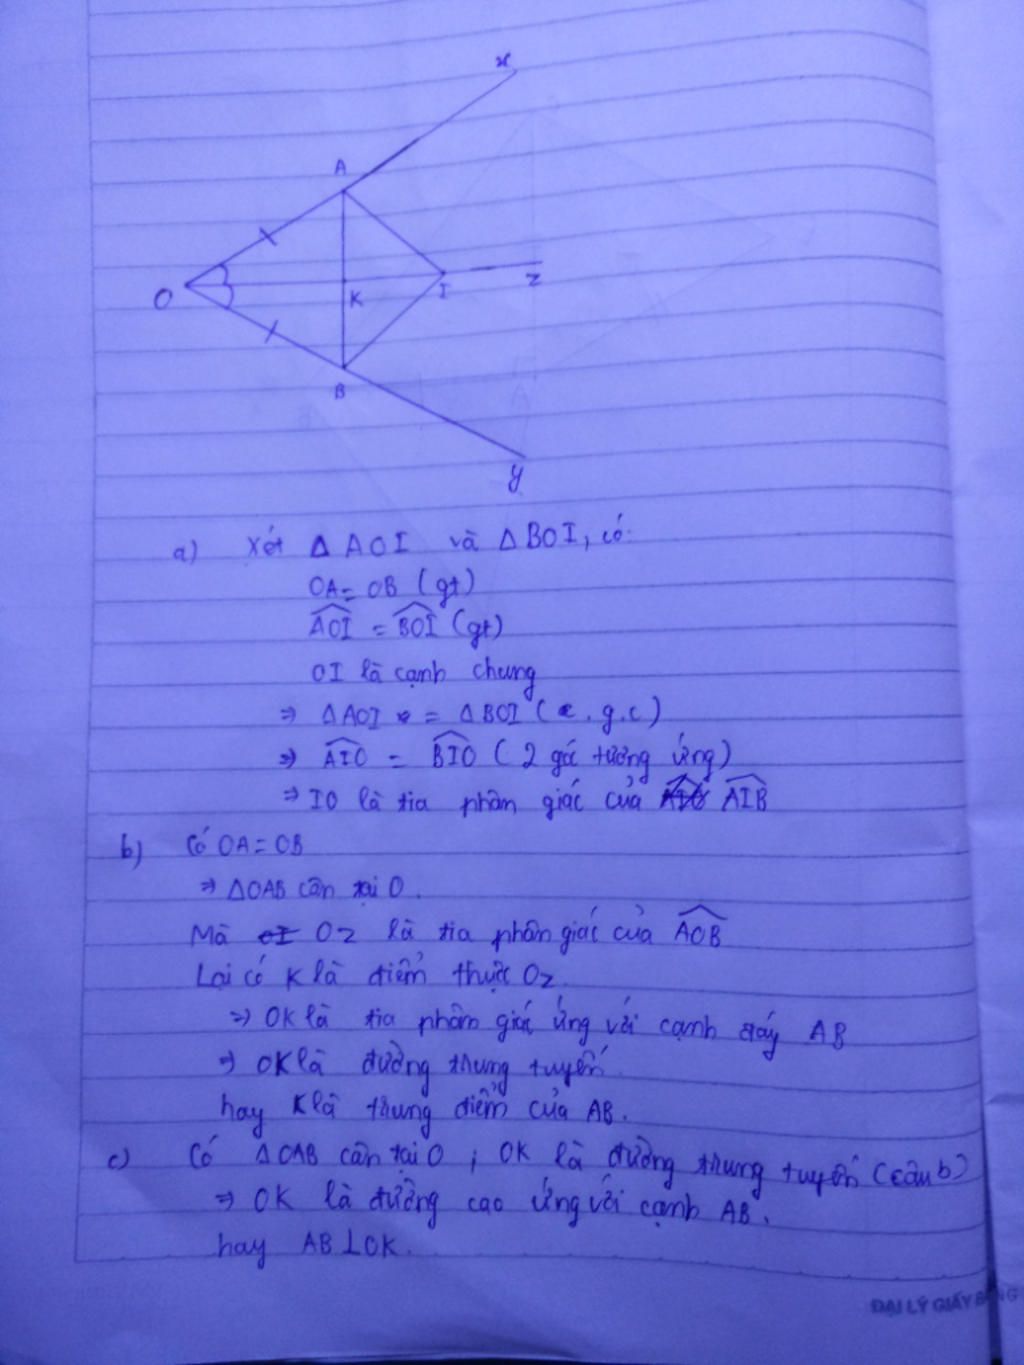 x
A
O
K
I
z
B
y
a) Xét Δ AOI và Δ BOI, có:
OA = OB (gt)
AOI = BOI (gt)
OI là cạnh chung
⇒ ΔAOI = ΔBOI (c.g.c)
⇒ AIO = BIO (2 góc tương ứng)
⇒ IO là tia phân giác của AIB
b) Có OA = OB
⇒ ΔOAB cân tại O.
Mà Oz là tia phân giác của AOB
Lại có K là điểm thuộc Oz.
⇒ OK là tia phân giác ứng với cạnh đáy AB
⇒ OK là đường trung tuyến.
hay K là trung điểm của AB.
c) Có ΔOAB cân tại O ; OK là đường trung tuyến (câu b)
⇒ OK là đường cao ứng với cạnh AB.
hay AB ⊥ OK.
ĐẠI LÝ GIẤY